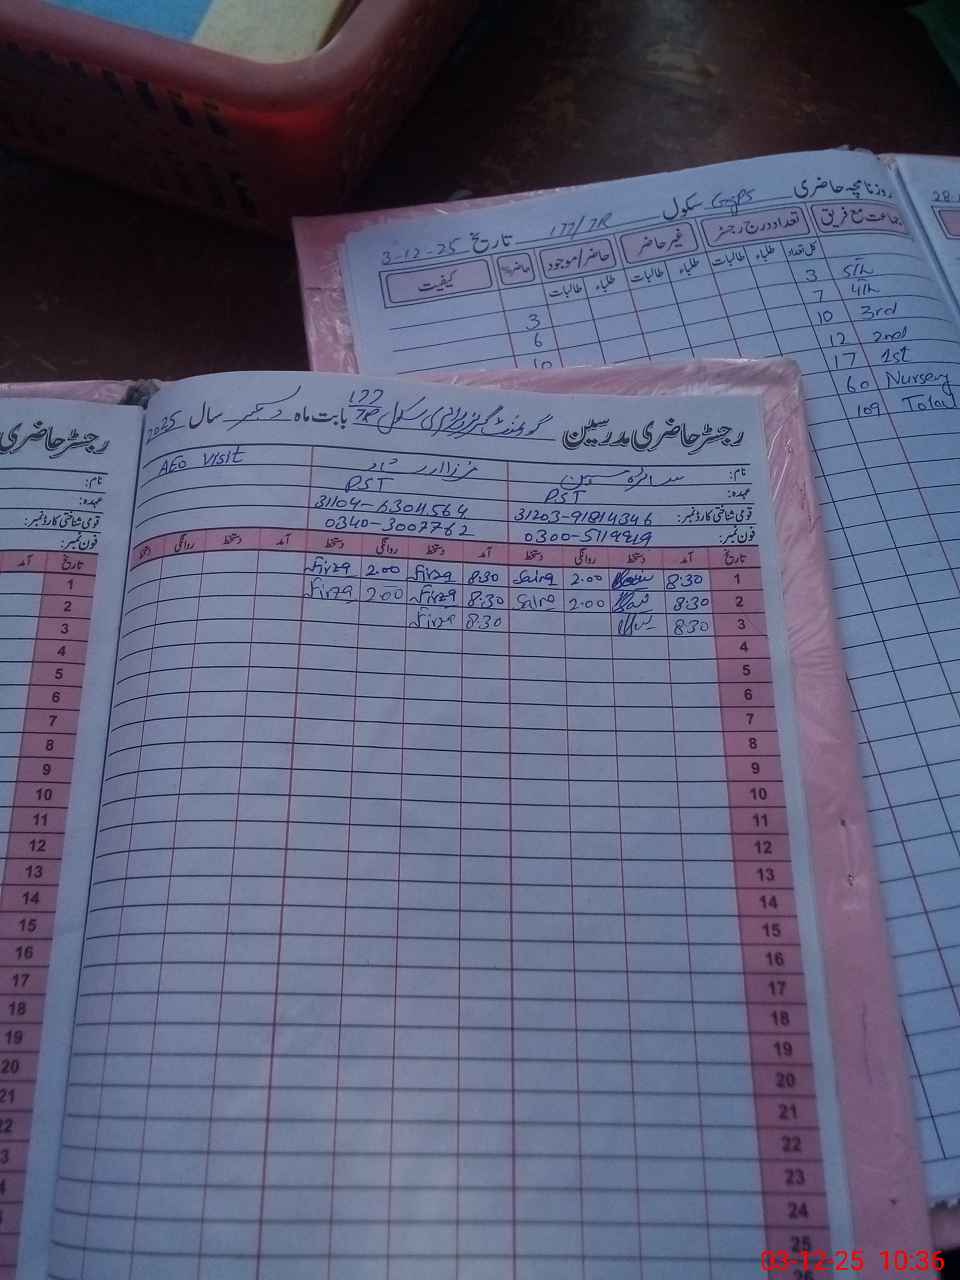 روزنامچہ حاضری سکول GGPS 177/7R تاریخ 3-12-25
جماعت مع فریق تعداد درج رجسٹر غیر حاضر حاضر/موجود کیفیت
کل تعداد طلباء طالبات طلباء طالبات طلباء طالبات
5th 3 3
4th 7 6
3rd 10 10
2nd 12
1st 17
Nursery 60
Total 109
رجسٹر حاضری مدرسین گورنمنٹ گرلز پرائمری سکول 177/7R بابت ماہ دسمبر سال 2025
نام: سائرہ AEO Visit
عہدہ: PST PST
قومی شناختی کارڈ نمبر: 31104-6304564
فون نمبر: 0300-5119919 0340-3007762
تاریخ آمد دستخط روانگی دستخط آمد دستخط روانگی دستخط آمد دستخط روانگی دستخط
1 8:30 2:00 Saira 8:30 Firza 2:00 Firza
2 8:30 2:00 Saira 8:30 Firza 2:00 Firza
3 8:30 8:30 Firza
4
5
6
7
8
9
10
11
12
13
14
15
16
17
18
19
20
21
22
23
24
25
26
رجسٹر حاضری
نام:
عہدہ:
قومی شناختی کارڈ نمبر:
فون نمبر:
تاریخ آمد
1
2
3
4
5
6
7
8
9
10
11
12
13
14
15
16
17
18
19
20
21
22
03-12-25 10:36